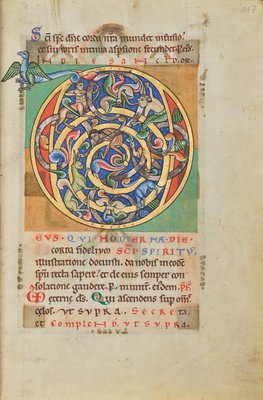 117
Sc̄i sp̄c dn̄e corda nr̄a mundet infusio
et sui roris intima aspsione fecundet. P. eiꝰd
IN DIE SANCTO
EUS · QUI HODIERNA DIE
corda fidelium SCI SPIRITVS
illustratione docuisti. da nobis in eodē
spū recta sapere. et de eius semper con
solatione gaudere. P. eiusdem.
eterne dS. Qui ascendens sup om̄s
celos. VT SVPRA. Secreta
et Complend. VT SVPRA.